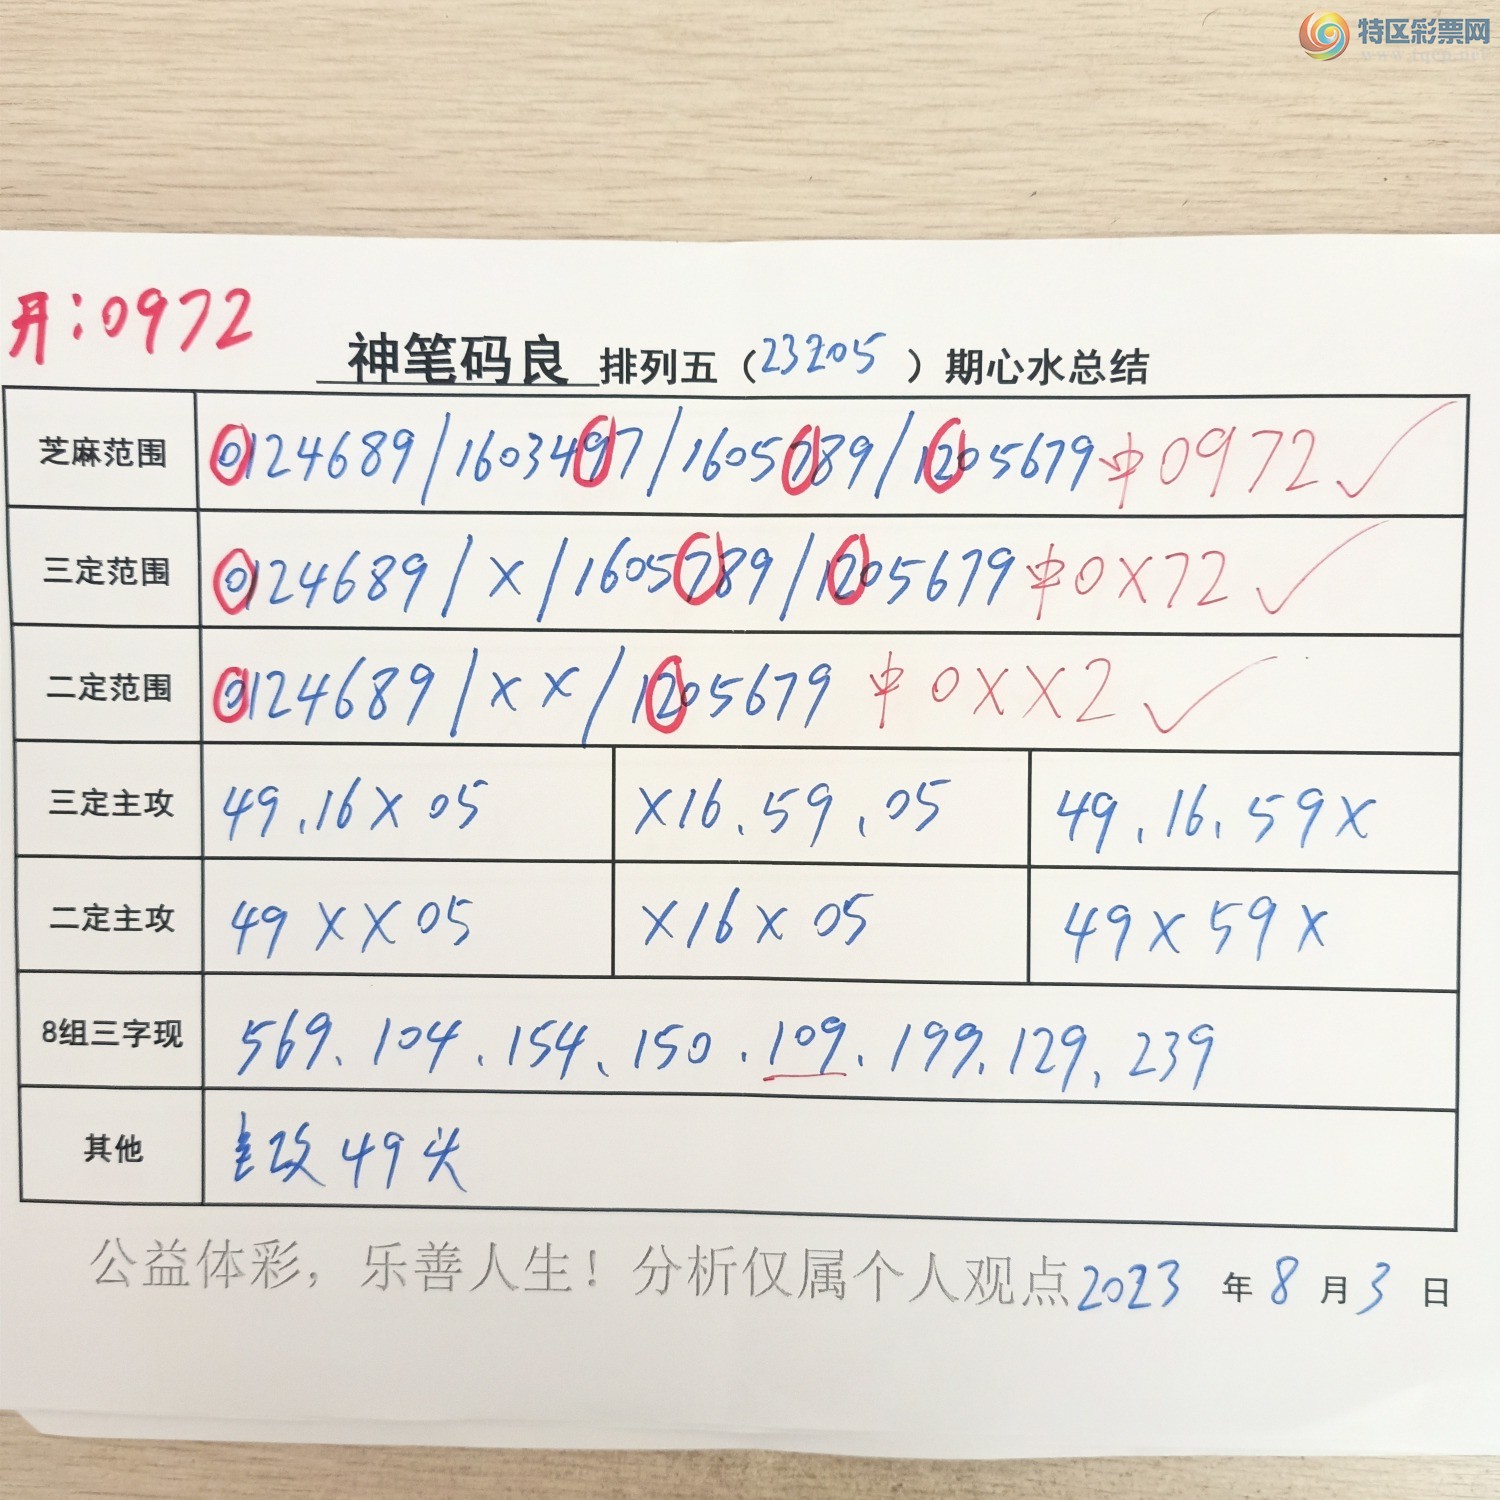 特区彩票网
www.tqcp.net
开:0972
神笔码良 排列五（23205）期心水总结
芝麻范围 0124689/1603497/1605789/1205679 中0972✓
三定范围 0124689/X/1605789/1205679 中0X72✓
二定范围 0124689/XX/1205679 中0XX2✓
三定主攻 49.16X05 X16.59.05 49.16.59X
二定主攻 49XX05 X16X05 49X59X
8组三字现 569.104.154.150.109.199.129.239
其他 主攻49头
公益体彩，乐善人生！分析仅属个人观点2023年8月3日